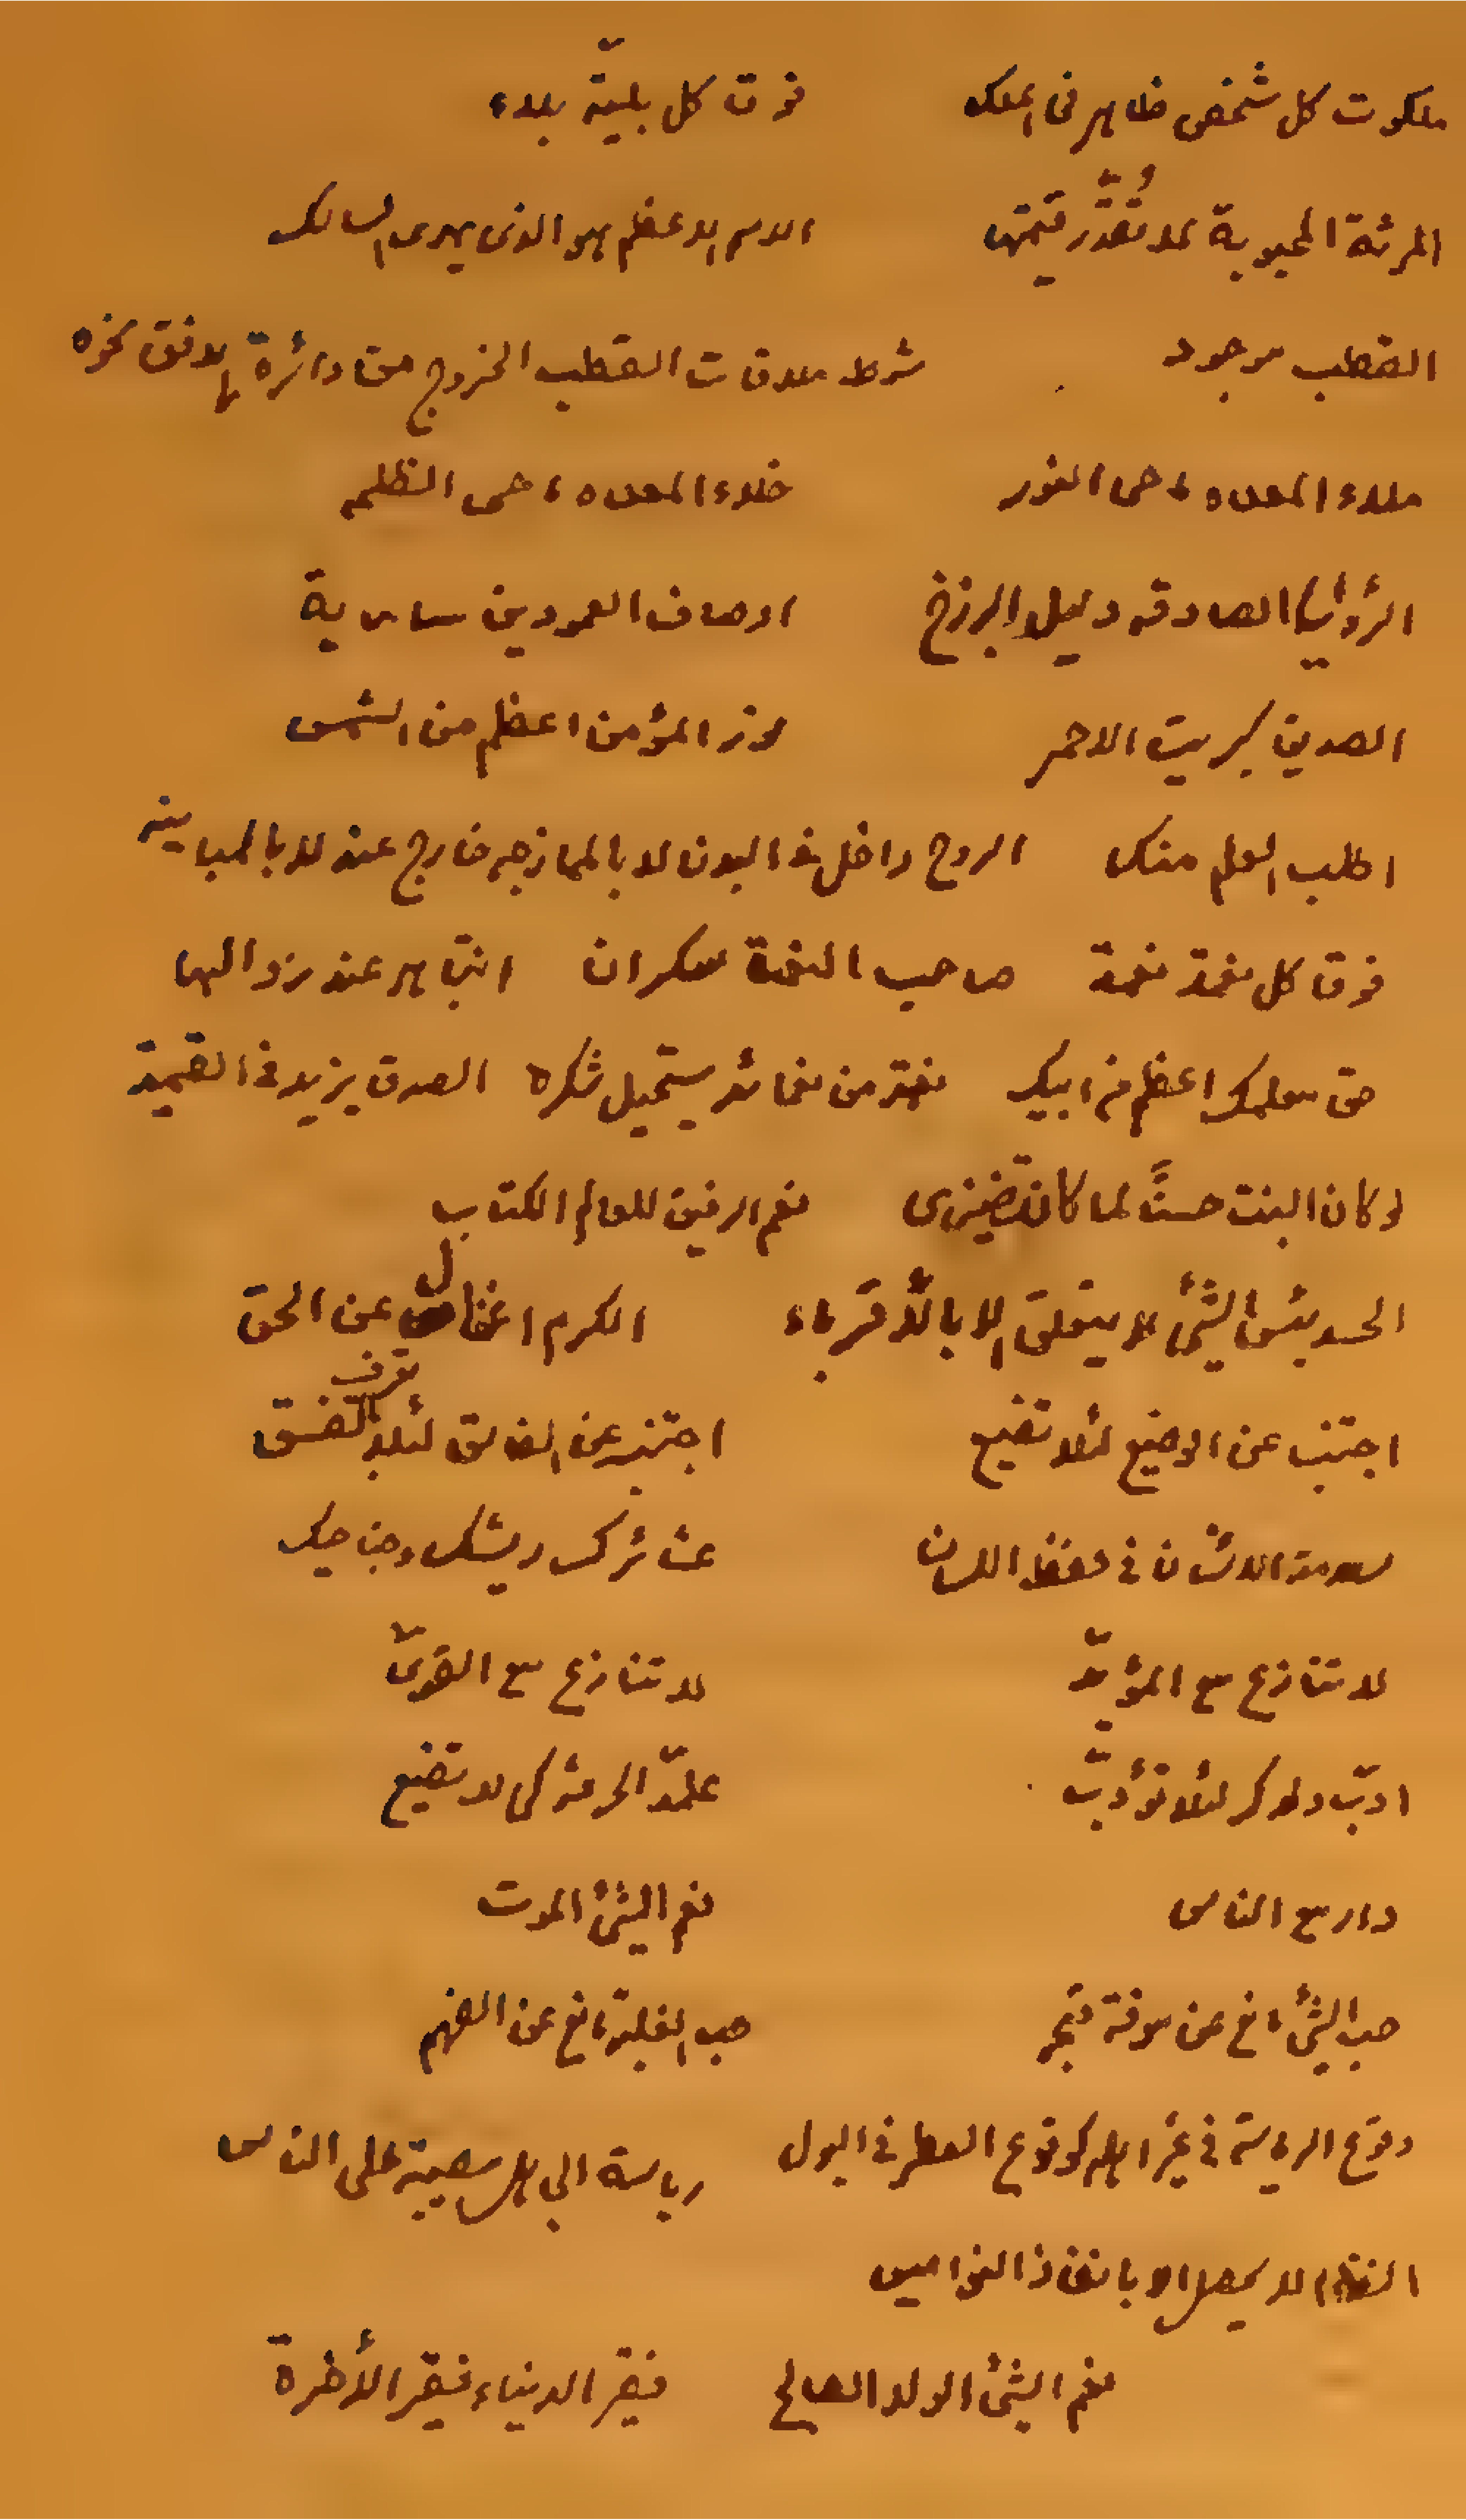 ملكوت كل شخص ظاهر فى الملك فوق كل بليّة بلاء
المرئة المحبوبة لا تُقدَّر قيمتها الاسم الاعظم هو الذى يهدى السالك
القطب موجود شرط ملاقات القطب الخروج من دائرة الافق نحوه
ملاء المعده ماحى النور خلاء المعده ماحى الظلم
الرؤيا الصادقه دليل البرزخ اوصاف العمودين سارية
الصديق كبريت الاحمر نور المؤمن اعظم من الشمس
اطلب العلم منك الروح داخل فى البدن لا بالممازجه خارج عنه لا بالمباينه
فوق كل نعمة نعمة صاحب النعمة سكران انتباهه عند زوالها
حق معلمك اعظم من ابيك نعمة من نعمائه يستحيل شكره الصدق يزيد فى القيمة
لو كان البنت حسناً لما كان ضيزى نعم الرفيق للعالم الكتاب
الحسد بئس الشئ لا يتعلق الا بالأقرباء الكرم اغفال عن الحق
اجتنب عن الوضيع لئلا تضيع اجتنب عن الفاسق لئلا تعرف بالفسق
سلامة الانسان فى حفظ اللسان عشائرك ريشك وجناحك
لا تنازع مع المؤيّد لا تنازع مع القوىّ
ادّب ولدك لئلا تؤدّب علمّه الحرفة كى لا تضيع
دار مع الناس نعم الشئ الموت
حب الشئ مانع عن معرفة قبحه حب الغلبة مانع عن الفهم
وقوع الرياسة فى غير اهله كوقوع العطر فى البول رياسة الجاهل مصيبة على الناس
النظام لا يحصل الا بانفاذ النواميس
نعم الشئ الولد الصالح فقر الدنياء فقر الأخرة